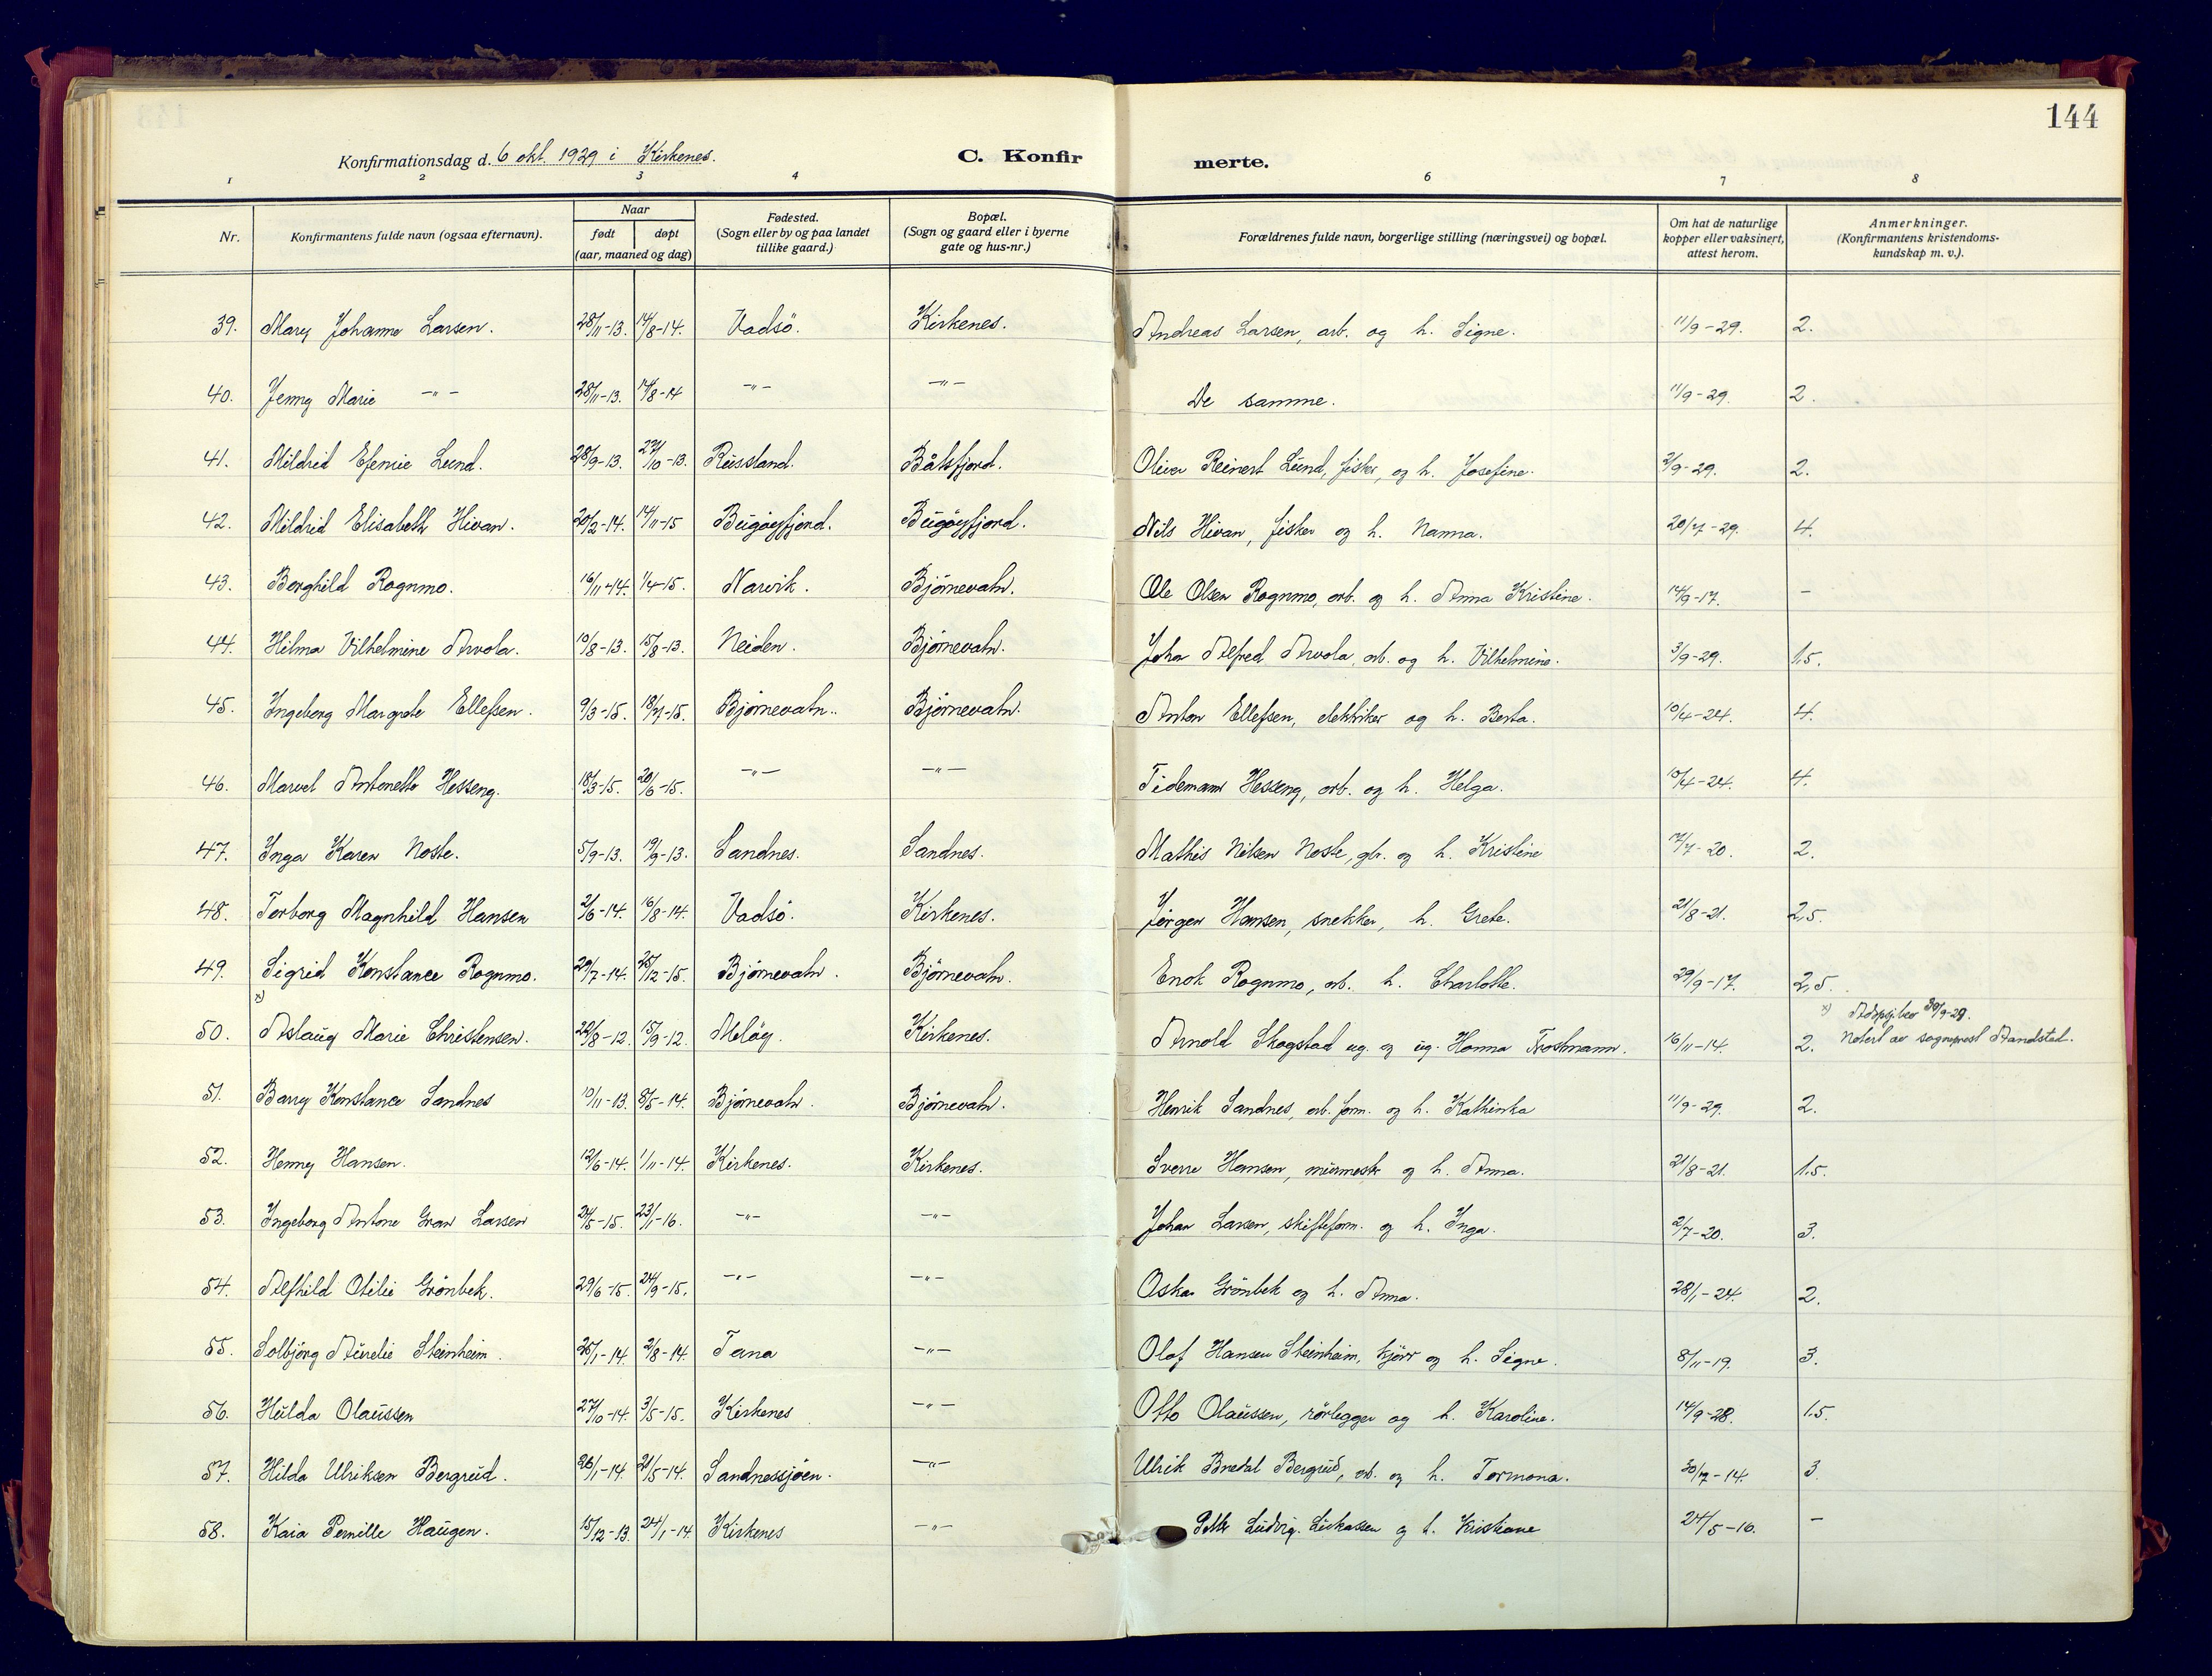 144
Konfirmationsdag d. 6 okt. 1929 i Kirkenes.
C. Konfir merte.
1 2 3 4 6 7 8
Nr.
Konfirmantens fulde navn (ogsaa efternavn).
Naar
født døpt
(aar, maaned og dag)
Fødested.
(Sogn eller by og paa landet
tillike gaard.)
Bopæl.
(Sogn og gaard eller i byerne
gate og hus-nr.)
Forældrenes fulde navn, borgerlige stilling (næringsvei) og bopæl.
Om hat de naturlige
kopper eller vaksinert,
attest herom.
Anmerkninger.
(Konfirmantens kristendoms-
kundskap m. v.).
39. Mary Johanne Larsen. 28/11-13. 14/8-14. Vadsö. Kirkenes. Andreas Larsen, arb. og h. Signe. 11/9-29. 2.
40. Jenny Marie -"- 28/11-13. 14/8-14 -"- -"- De samme. 11/9-29. 2.
41. Mildrid Efenie Lund. 28/9-13. /10-13. Russland. Båtsfjord. Oliver Reinert Lund, fisker, og h. Josefine. 2/9-29. 2.
42. Mildrid Elisabeth Hivan. 20/2-14. 14/11-15 Bugöyfjord. Bugöyfjord. Nils Hivan, fisker og h. Nanna. 20/7-29. 4.
43. Borghild Rognmo. 16/11-14. 1/4-15. Narvik. Björnevatn. Ole Olsen Rognmo, arb. og h. Anna Kristine. 14/9-17. -
44. Hilma Vilhelmine Arvola. 10/8-13. 15/8-13. Neiden. Björnevatn. Johan Alfred Arvola, arb. og h. Vilhelmine. 3/9-29. 1,5.
45. Ingeborg Margrete Ellefsen. 9/3-15. 18/7-15. Björnevatn. Björnevatn. Anton Ellefsen, elektriker og h. Berta. 10/4-24. 4.
46. Marvel Antonette Hesseng. 18/3-15. 20/6-15. -"- -"- Tidemann Hesseng, arb. og h. Helga. 10/4-24. 4.
47. Inga Karen Noste. 5/9-13. 19/9-13. Sandnes. Sandnes. Mathis Nilsen Noste, gbr. og h. Kristine /7-20. 2.
48. Torborg Magnhild Hansen 2/6-14. 16/8-14. Vadsö. Kirkenes. Jörgen Hansen, snekker, h. Grete. 21/8-21. 2,5.
49. Sigrid Konstance Rognmo. 29/7-14. 25/12-15. Björnevatn. Björnevatn. Enok Rognmo, arb. h. Charlotte. 29/9-17. 2,5.
x) x) Adopsj.bev 30/9-29.
50. Aslaug Marie Christensen. 22/8-12. 15/9-12. Melöy. Kirkenes. Arnold Skogstad ug. og ug. Hanna Trostmann. 16/11-14. 2. Notert av sogneprest Aandstad.
51. Barry Konstance Sandnes 10/11-13. 8/5-14. Björnevatn. Björnevatn. Henrik Sandnes, arb. form. og h. Kathinka 11/9-29. 2.
52. Henny Hansen. 12/6-14. 1/11-14. Kirkenes. Kirkenes. Sverre Hansen, murmestr og h. Anna. 21/8-21. 1,5.
53. Ingeborg Antone Gran Larsen 24/5-15. 23/1-16. -"- -"- Johan Larsen, skifteform. og h. Inga. 2/7-20. 3.
54. Alfhild Otilie Grönbek. 29/6-15. 24/9-15. -"- -"- Oskar Grönbek og h. Anna. 28/1-24. 2.
55. Solbjörg Aurelie Steinheim. 25/1-14. 2/8-14. Tana -"- Olaf Hansen Steinheim, kjörer og h. Signe. 8/11-19. 3.
56. Hulda Olaussen 27/10-14. 3/5-15. Kirkenes -"- Otto Olaussen, rörlegger og h. Karoline. 14/9-28. 1,5.
57. Hilda Ulriksen Bergrud. 26/1-14. 21/5-14. Sandnessjöen. -"- Ulrik Bredal Bergrud, arb. og h. Tormona. 30/12-14. 3
58. Kaia Pernille Haugen. 15/12-13. 24/1-14. Kirkenes -"- Petter Ludvig. Lukassen og h. Kristiane 24/5-16. -